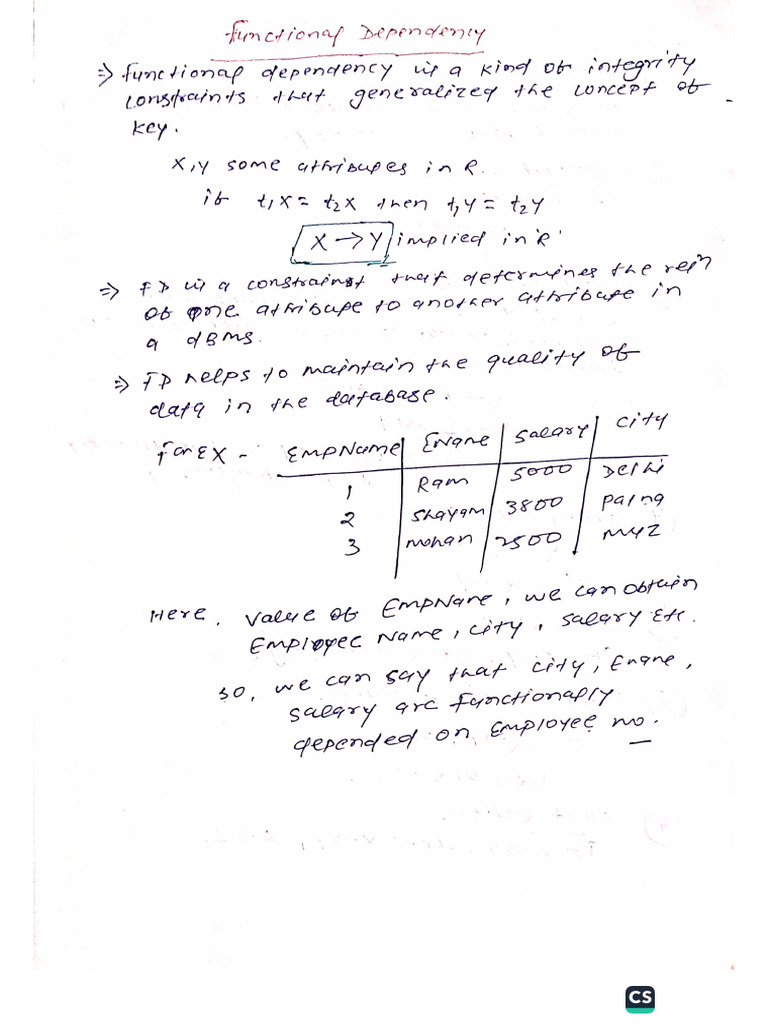 Functional Dependency
⇒ functional dependency is a kind of integrity
constraints that generalized the concept of
key.
X,Y some attributes in R.
if t₁X = t₂X then t₁Y = t₂Y
X → Y implied in 'R'
⇒ FD is a constraint that determines the relⁿ
of one attribute to another attribute in
a dBms.
⇒ FD helps to maintain the quality of
data in the database.
For EX - EmpName Ename salary city
1 Ram 5000 Delhi
2 Shayam 3800 Patna
3 mohan 2500 Muz
Here, value of EmpName, we can obtain
Employee Name, city, salary Etc.
so, we can say that city, Ename,
salary are functionally
depended on Employee no.
CS